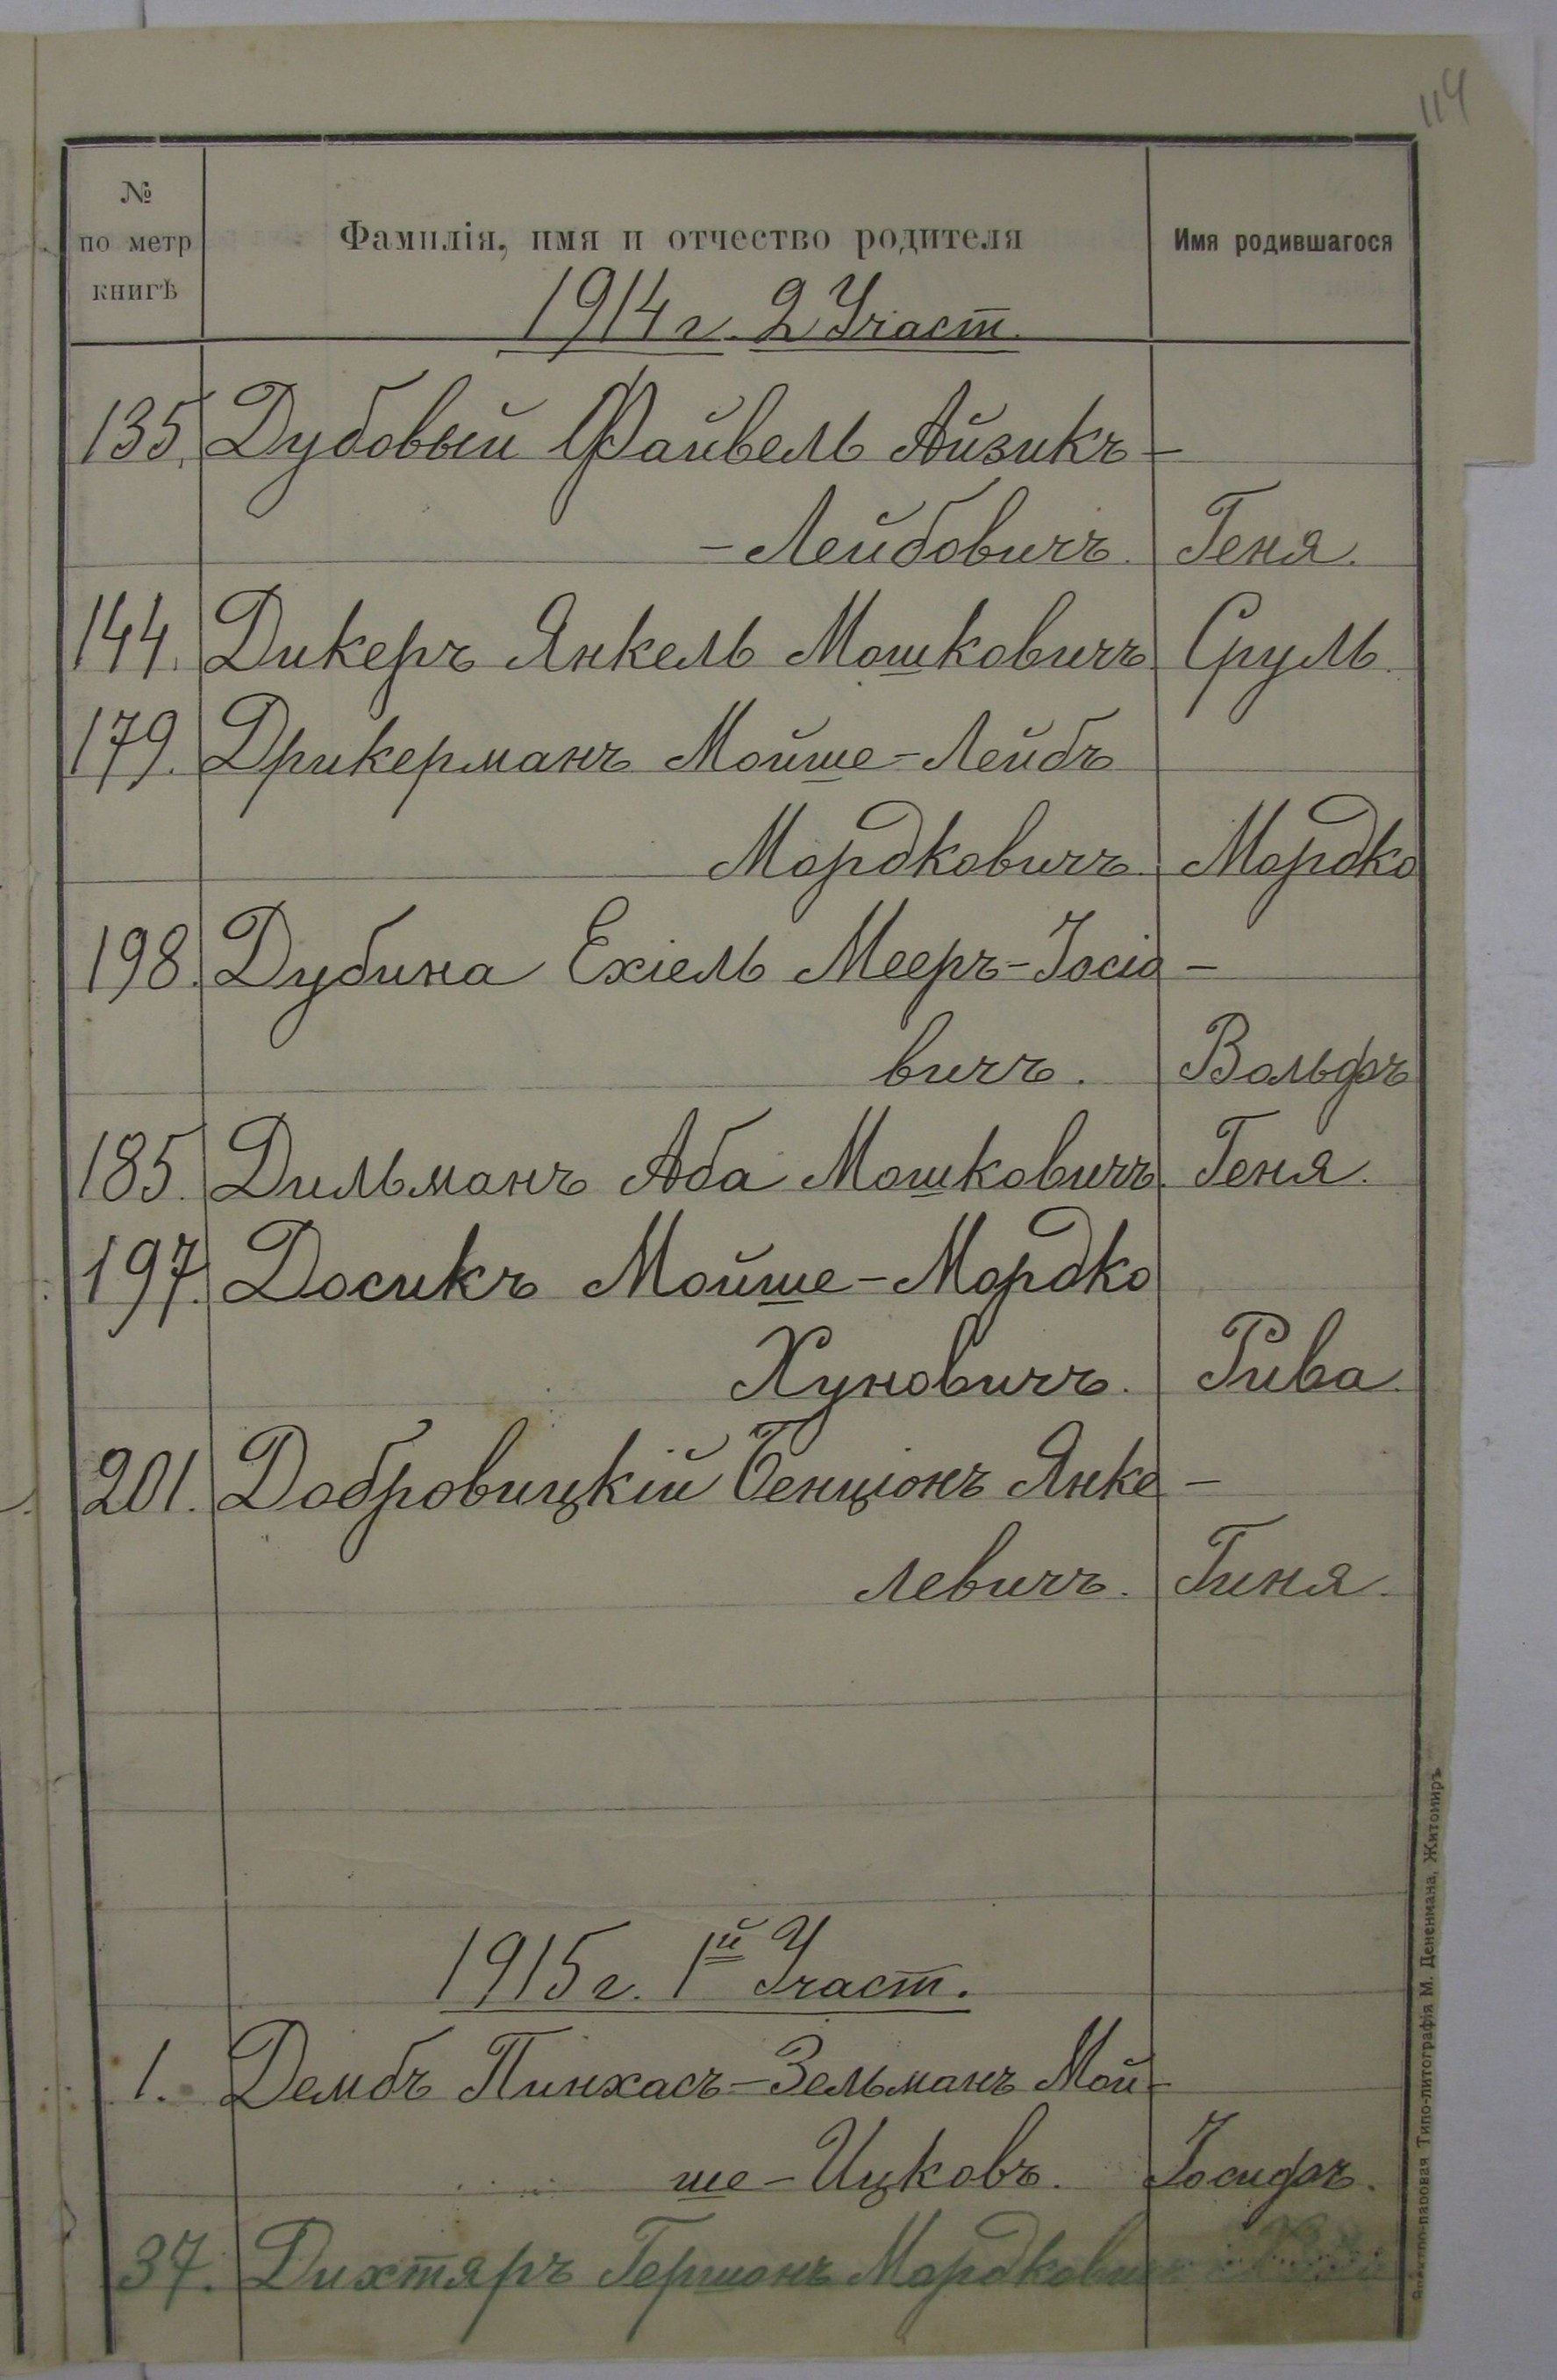 114
№ по метр книгѣ
Фамилія, имя и отчество родителя
Имя родившагося
1914 г. 2 Участ.
135. Дубовый Файвель Айзикъ-
-Лейбовичъ. Геня.
144. Дикеръ Янкель Мошковичъ Сруль
179. Дрикерманъ Мойше-Лейбъ
Мордковичъ. Мордко
198. Дубина Ехіель Мееръ-Іосіо-
вичъ. Вольфъ
185. Дильманъ Аба Мошковичъ. Геня.
197. Досикъ Мойше-Мордко
Хуновичъ. Рива.
201. Добровицкій Бенціонъ Янке-
левичъ. Гиня.
1915 г. 1й Участ.
1. Дембъ Пинхасъ-Зельманъ Мой-
ше-Ицковъ. Іосифъ.
37. Дихтяръ Гершонъ Мордкович
паровая Типо-литографія М. Дененмана, Житомиръ